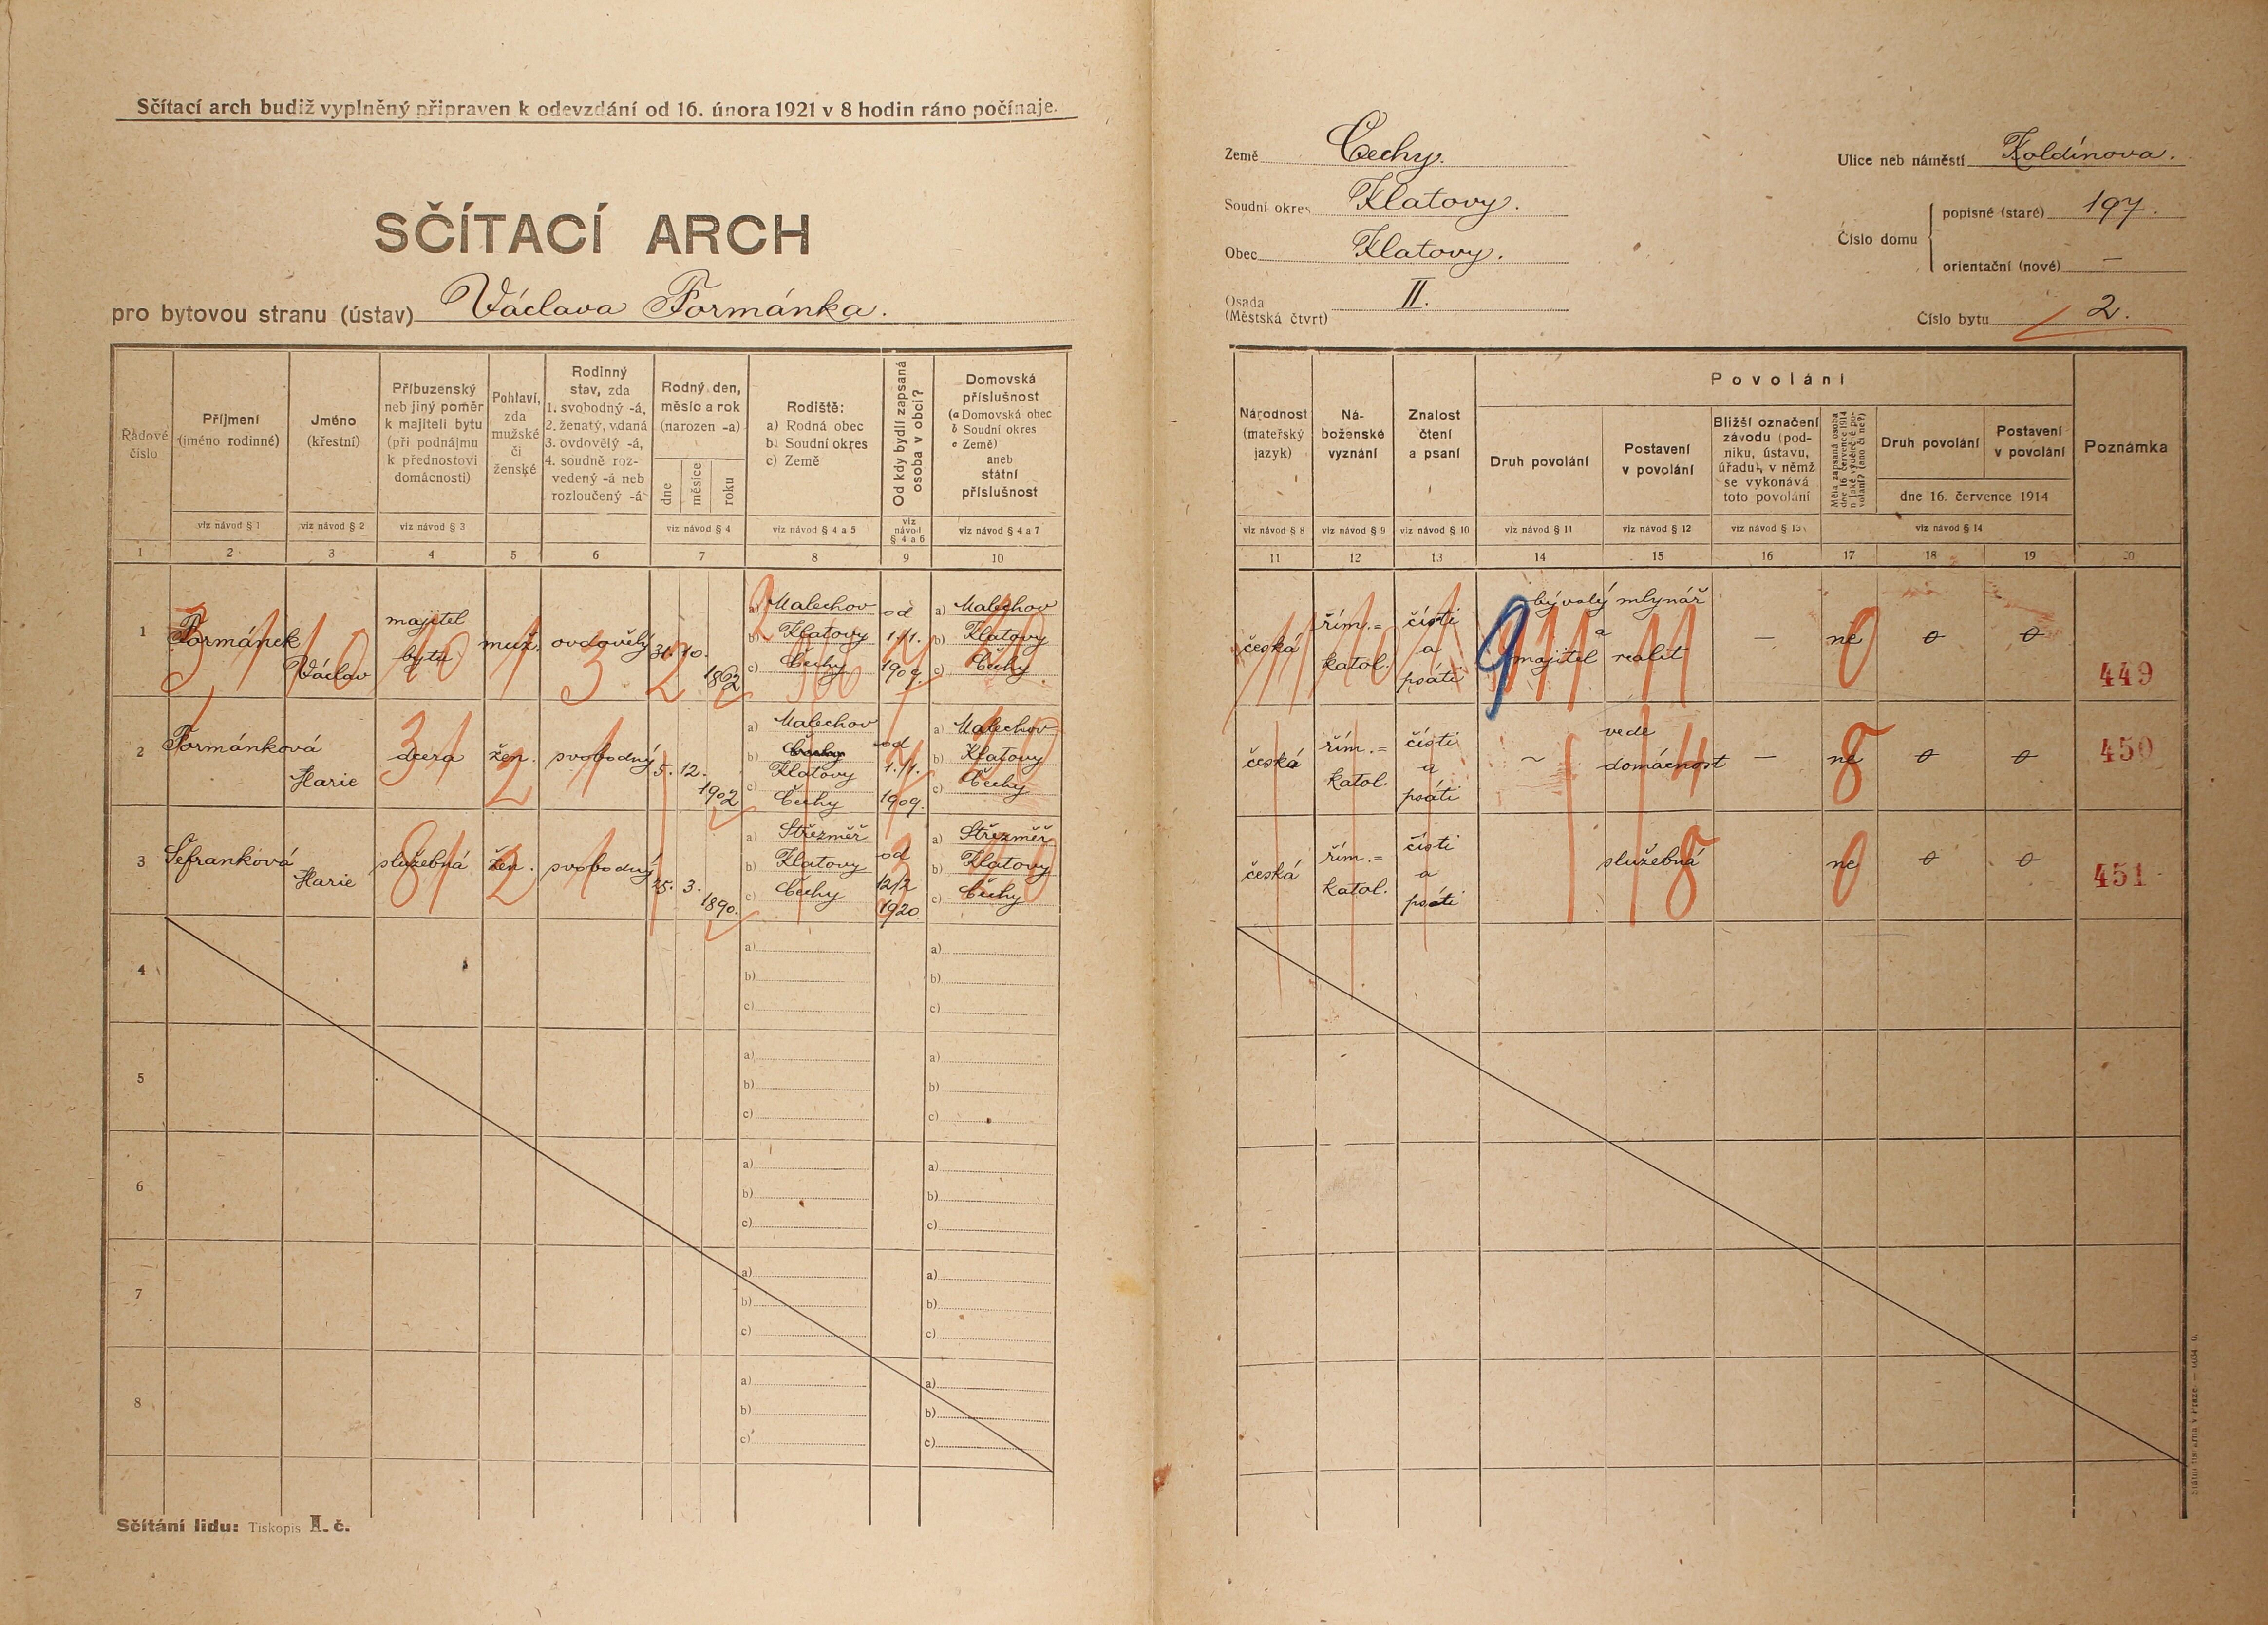 Sčítací arch budiž vyplněný připraven k odevzdání od 16. února 1921 v 8 hodin ráno počínaje.
SČÍTACÍ ARCH
pro bytovou stranu (ústav) Václava Formánka.
Země Čechy.
Soudní okres Klatovy.
Obec Klatovy.
Osada
(Městská čtvrť) II.
Ulice neb náměstí Koldínova.
Číslo domu
popisné (staré) 197.
orientační (nové) —
Číslo bytu 2.
Řadové
číslo
Příjmení
(jméno rodinné)
viz návod § 1
Jméno
(křestní)
viz návod § 2
Příbuzenský
neb jiný poměr
k majiteli bytu
(při podnájmu
k přednostovi
domácnosti)
viz návod § 3
Pohlaví,
zda
mužské
či
ženské
Rodinný
stav, zda
1. svobodný -á,
2. ženatý, vdaná
3. ovdovělý -á,
4. soudně roz-
vedený -á neb
rozloučený -á
Rodný den,
měsíc a rok
(narozen -a)
dne
měsíce
roku
viz návod § 4
Rodiště:
a) Rodná obec
b) Soudní okres
c) Země
viz návod § 4 a 5
Od kdy bydlí zapsaná
osoba v obci?
viz
návod
§ 4 a 6
Domovská
příslušnost
(a Domovská obec
b Soudní okres
c Země)
aneb
státní
příslušnost
viz návod § 4 a 7
1 2 3 4 5 6 7 8 9 10
Národnost
(mateřský
jazyk)
viz návod § 8
Ná-
boženské
vyznání
viz návod § 9
Znalost
čtení
a psaní
viz návod § 10
Povolání
Druh povolání
viz návod § 11
Postavení
v povolání
viz návod § 12
Bližší označení
závodu (pod-
niku, ústavu,
úřadu), v němž
se vykonává
toto povolání
viz návod § 13
Měla zapsaná osoba
dne 16. července 1914
nějaké výdělečné po-
volání? (ano či ne?)
Druh povolání
Postavení
v povolání
dne 16. července 1914
viz návod § 14
Poznámka
11 12 13 14 15 16 17 18 19 20
1 Formánek Václav majitel bytu muž. ovdovělý 31. 10. 1862
a) Malechov
b) Klatovy
c) Čechy
od
1./1.
1909.
a) Malechov
b) Klatovy
c) Čechy.
česká řím.= katol. čísti a psáti bývalý mlynář a majitel realit — ne 0 0 449
2 Formánková Marie dcera žen. svobodný 5. 12. 1902
a) Malechov
b) Klatovy
c) Čechy
od
1./1.
1909.
a) Malechov
b) Klatovy
c) Čechy
česká řím.= katol. čísti a psáti ~ vede domácnost — ne 0 0 450
3 Šefranková Marie služebná žen. svobodný 25. 3. 1890.
a) Střezměř
b) Klatovy
c) Čechy
od
12/2
1920
a) Střezměř
b) Klatovy
c) Čechy
česká řím.= katol. čísti a psáti služebná ne 0 0 451
4 a) a)
b) b)
c) c)
5 a) a)
b) b)
c) c)
6 a) a)
b) b)
c) c)
7 a) a)
b) b)
c) c)
8 a) a)
b) b)
c) c)
Sčítání lidu: Tiskopis I. č.